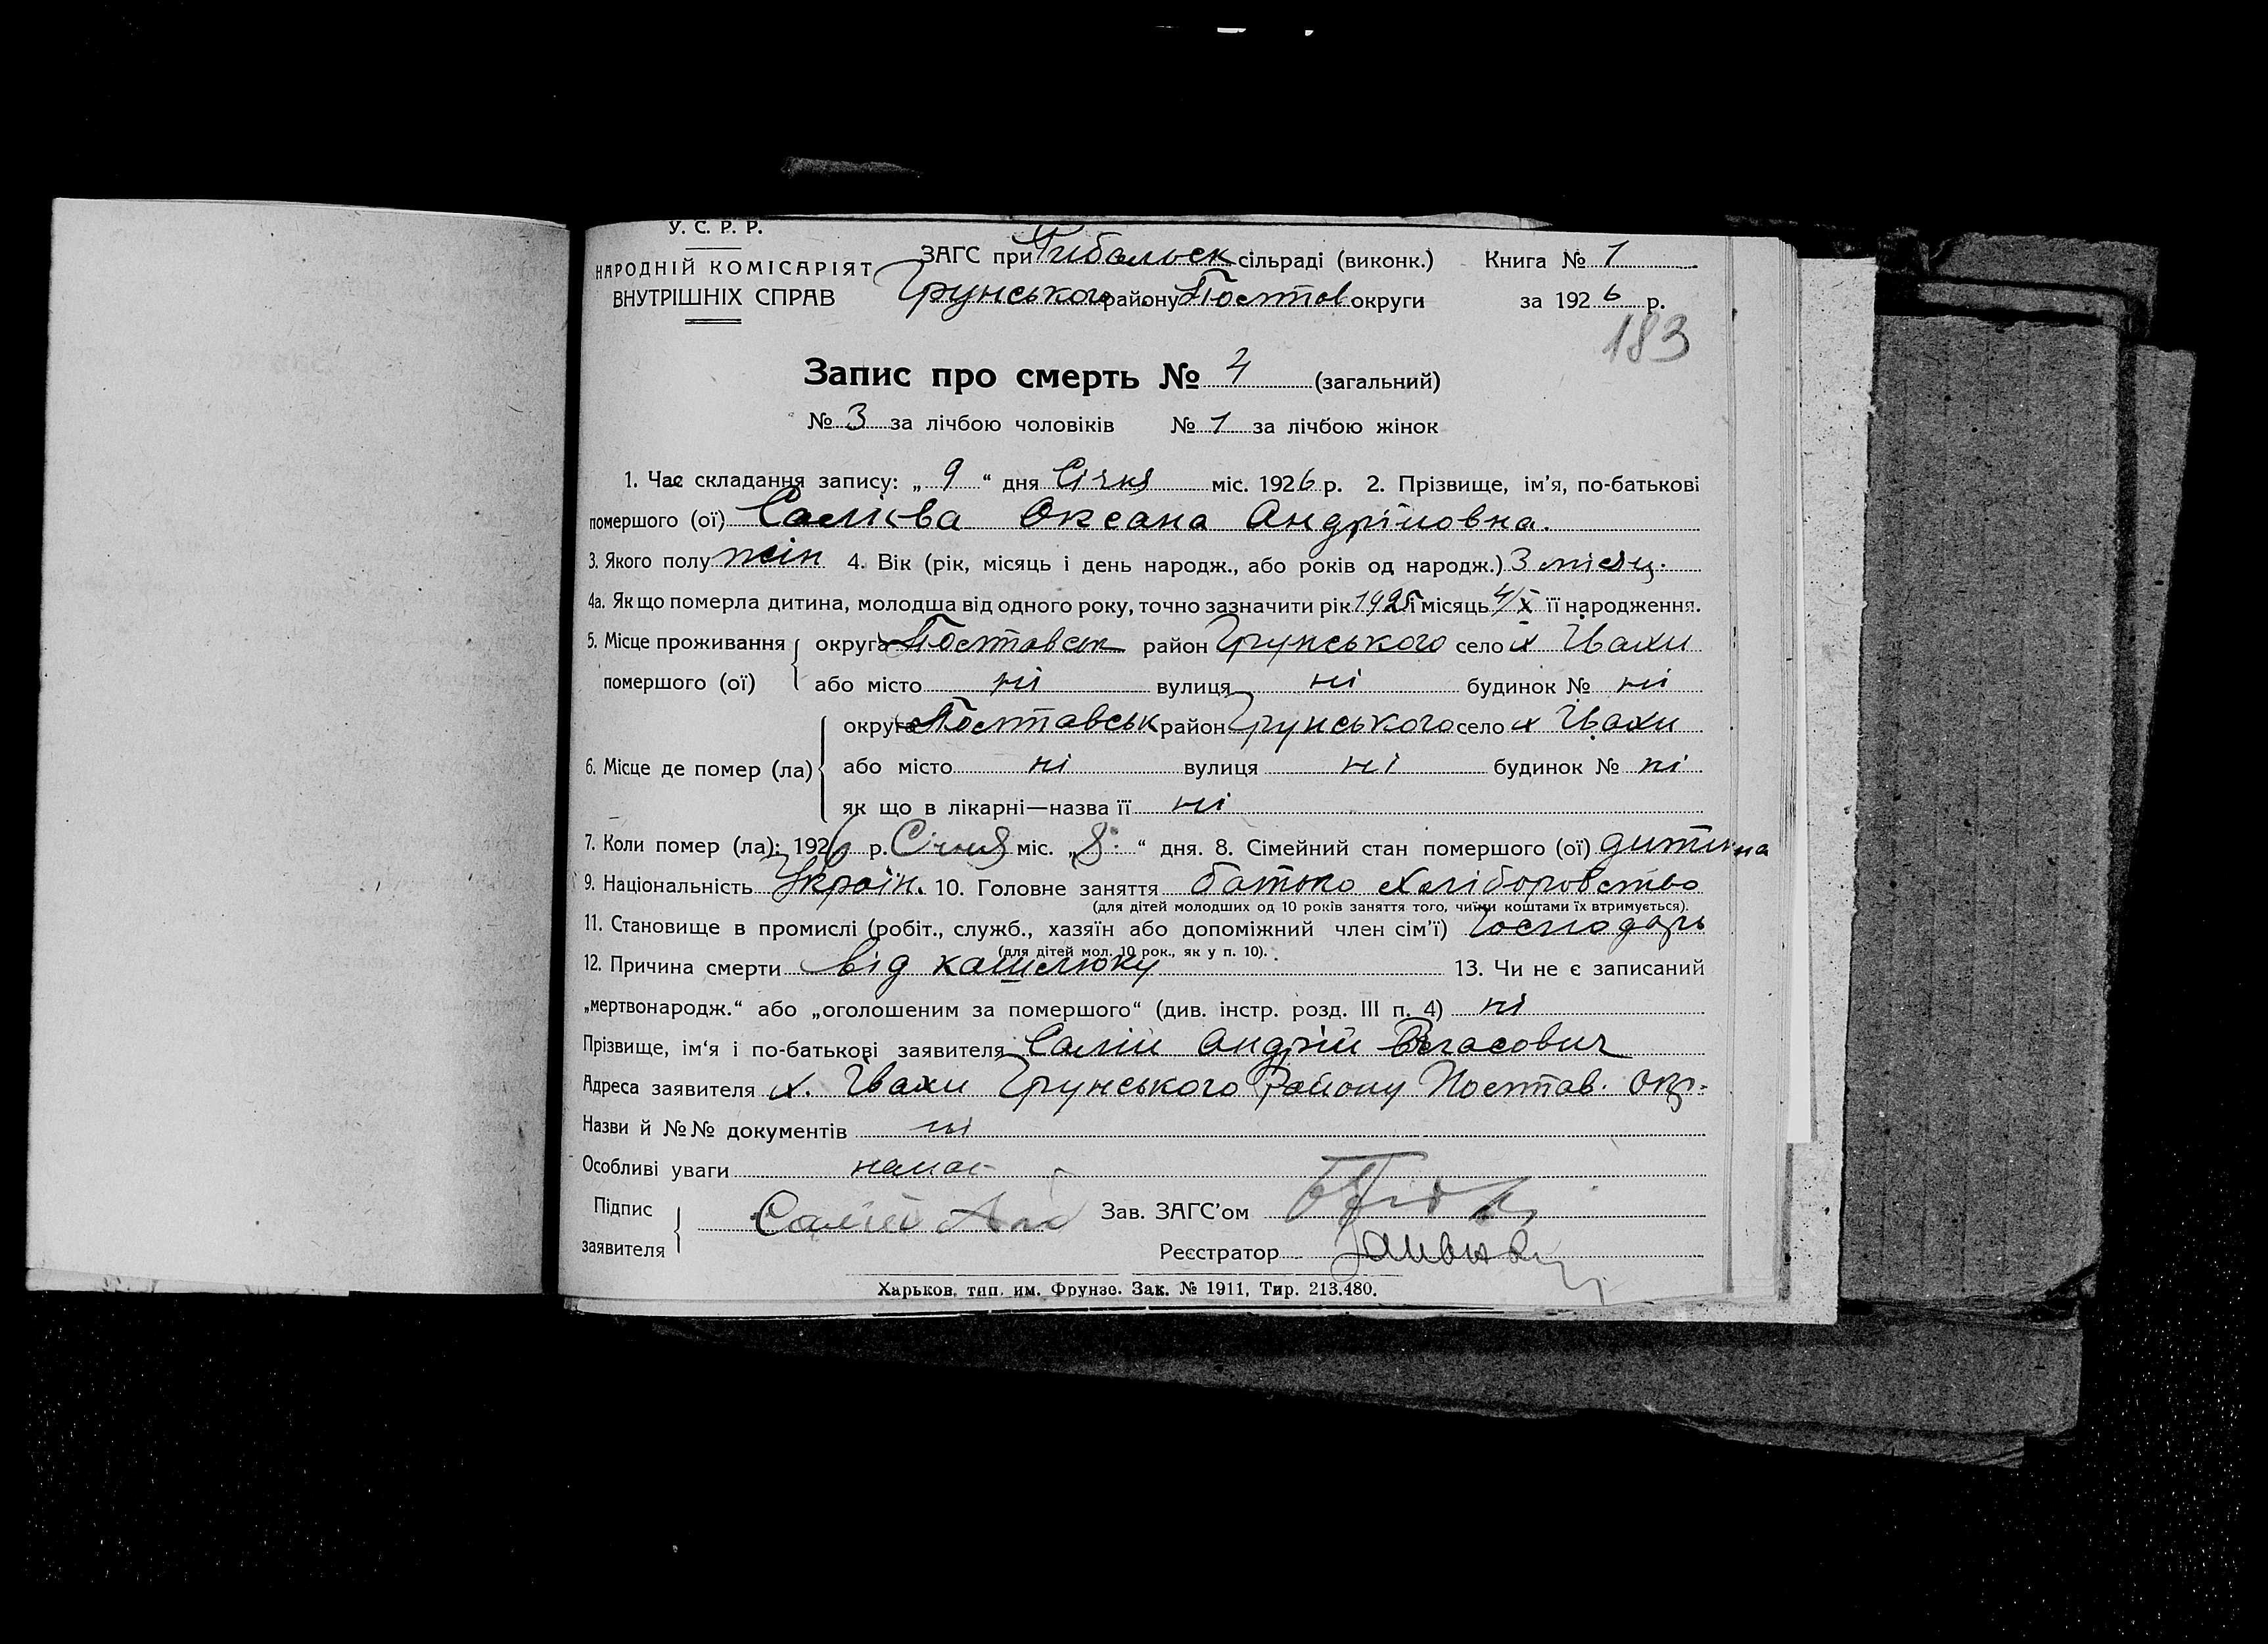 У. С. Р. Р.
НАРОДНІЙ КОМІСАРІЯТ
ВНУТРІШНІХ СПРАВ
ЗАГС при Рибальск сільраді (виконк.) Книга № 1
Грунського району Полтав округи за 1926 р.
183
Запис про смерть № 4 (загальний)
№ 3 за лічбою чоловіків № 1 за лічбою жінок
1. Час складання запису: „ 9 “ дня Січня міс. 1926 р. 2. Прізвище, ім'я, по-батькові
помершого (ої) Саліева Оксана Андріловна.
3. Якого полу жін 4. Вік (рік, місяць і день народж., або років од народж.) 3 місяц.
4а. Як що померла дитина, молодша від одного року, точно зазначити рік 1925 і місяць 4/X її народження.
5. Місце проживання помершого (ої) округа Полтавск район Грунського село х Івахи
або місто ні вулиця ні будинок № ні
6. Місце де помер (ла) округа Полтавськ район Грунського село х Івахи
або місто ні вулиця ні будинок № ні
як що в лікарні—назва її ні
7. Коли помер (ла): 1926 р. Січня міс. „ 8 “ дня. 8. Сімейний стан помершого (ої) дитина
9. Національність Україн. 10. Головне заняття батько хліборобство
(для дітей молодших од 10 років заняття того, чиїми коштами їх втримується).
11. Становище в промислі (робіт., служб., хазяїн або допоміжний член сім'ї) Господарь
(для дітей мол. 10 рок., як у п. 10).
12. Причина смерти від кашлюку 13. Чи не є записаний
„мертвонародж.“ або „оголошеним за помершого“ (див. інстр. розд. III п. 4) ні
Прізвище, ім'я і по-батькові заявителя Салій Андрій Власович
Адреса заявителя х. Івахи Грунського Району Полтав. окр.
Назви й №№ документів ні
Особливі уваги немає
Підпис заявителя Салій Зав. ЗАГС'ом
Реєстратор
Харьков, тип. им. Фрунзе. Зак. № 1911, Тир. 213.480.